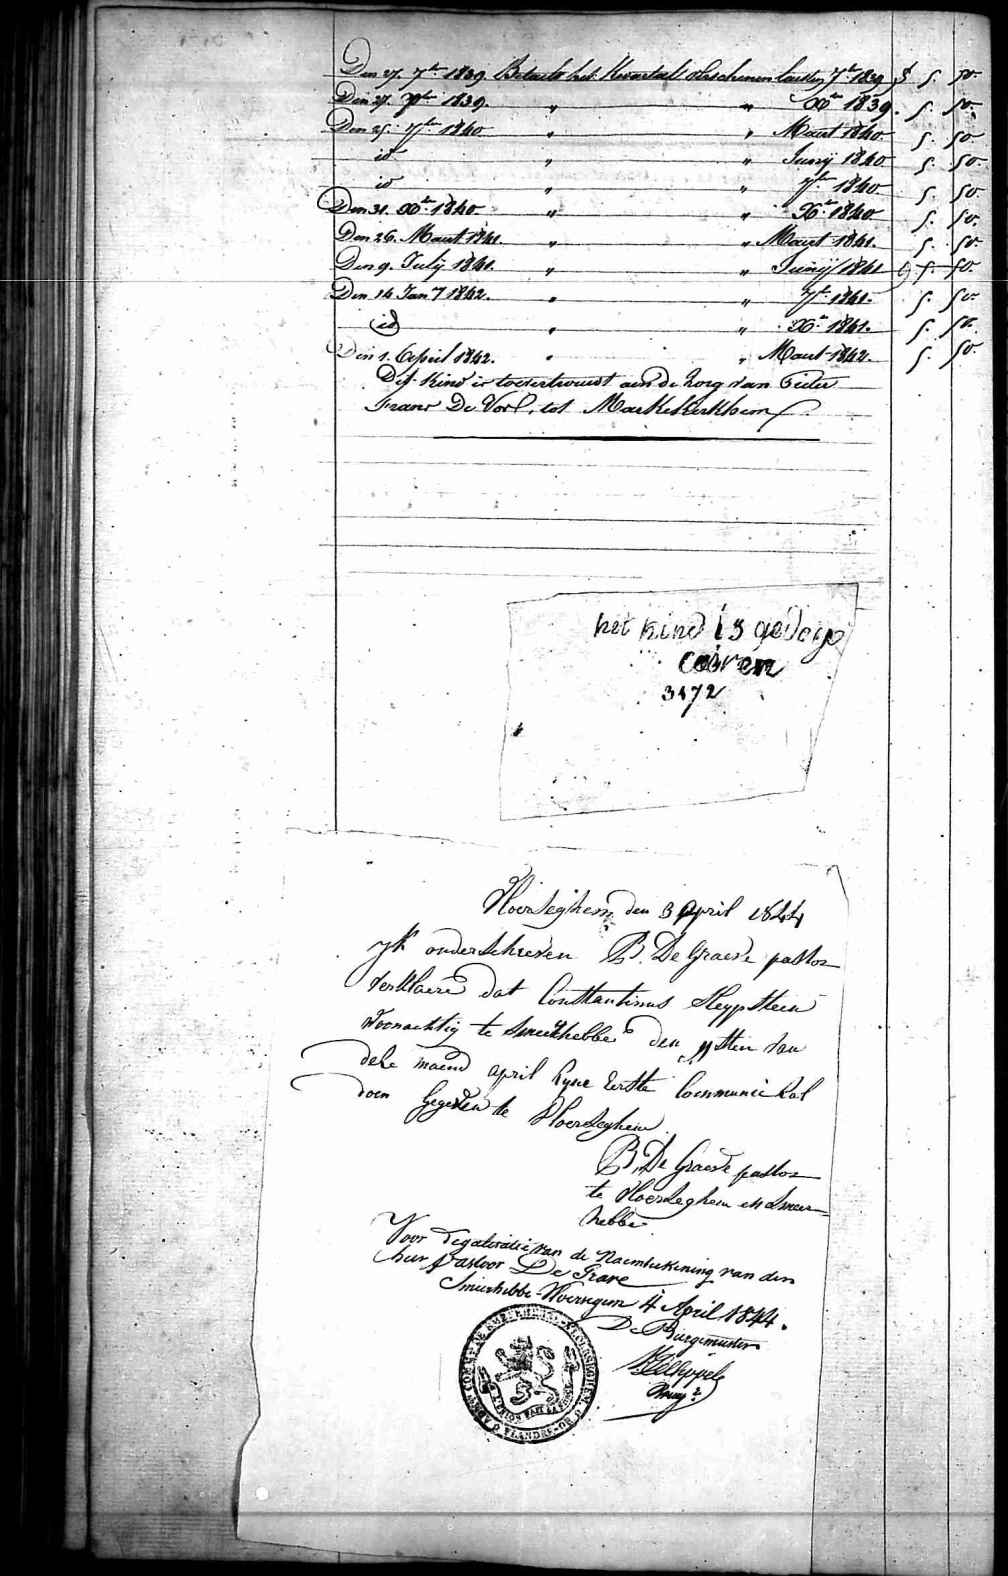 Den 27. 7br 1839. Betaelt het Kwartael verschenen 7br 1839 5. 50.
Den 27. Xbr 1839. " " Xbr 1839. 5. 50.
Den 25. 7br 1840 " " Maart 1840. 5. 50
id " " Junij 1840 5. 50.
id " " 7br 1840. 5. 50.
Den 31. Xbr 1840. " " Xbr 1840. 5. 50.
Den 26. Maart 1841. " " Maart 1841. 5. 50.
Den 9. Julij 1841. " " Junij 1841 5. 50.
Den 14 Jan 1842. " " 7br 1841. 5. 50.
id " " Xbr 1841. 5. 50.
Den 1. April 1842. " " Maart 1842. 5. 50.
Dit kind is toevertrouwt aen de zorg van Pieter
Franc De Vos, tot Markekerkhem.
het kind is gevogc
ceiren
3472
Voorseghem den 3 april 1844
yk onderschreven B. De Graeve pastor
verklaere dat Constantinus Sleypsteen
woonachtig te Smeerhebbe den 11sten van
deze maend april zyne eerste Communie zal
doen gegeven te Vloerseghem
B. De Graeve pastor
te Vloerseghem en Smeer-
hebbe
Voor Legalisatie van de Naemteekening van den
heer pastoor De Grave
Smeerhebbe Vloersegem 4 April 1844.
De Burgemeester
L'UNION FAIT LA FORCE